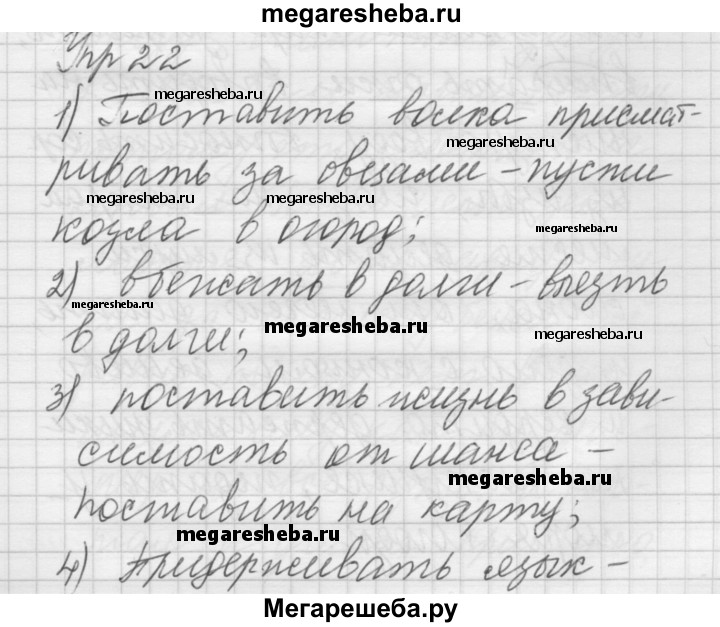 megaresheba.ru
Упр 22
megaresheba.ru
1) Поставить волка присмат-
megaresheba.ru
ривать за овцами - пусти
megaresheba.ru megaresheba.ru
козла в огород;
megaresheba.ru
2) вбежать в долги - влезть
megaresheba.ru
megaresheba.ru
megaresheba.ru
в долги;
3) поставить жизнь в зави-
симость от шанса -
megaresheba.ru
поставить на карту;
megaresheba.ru
4) Придерживать язык -
Мегарешеба.ру